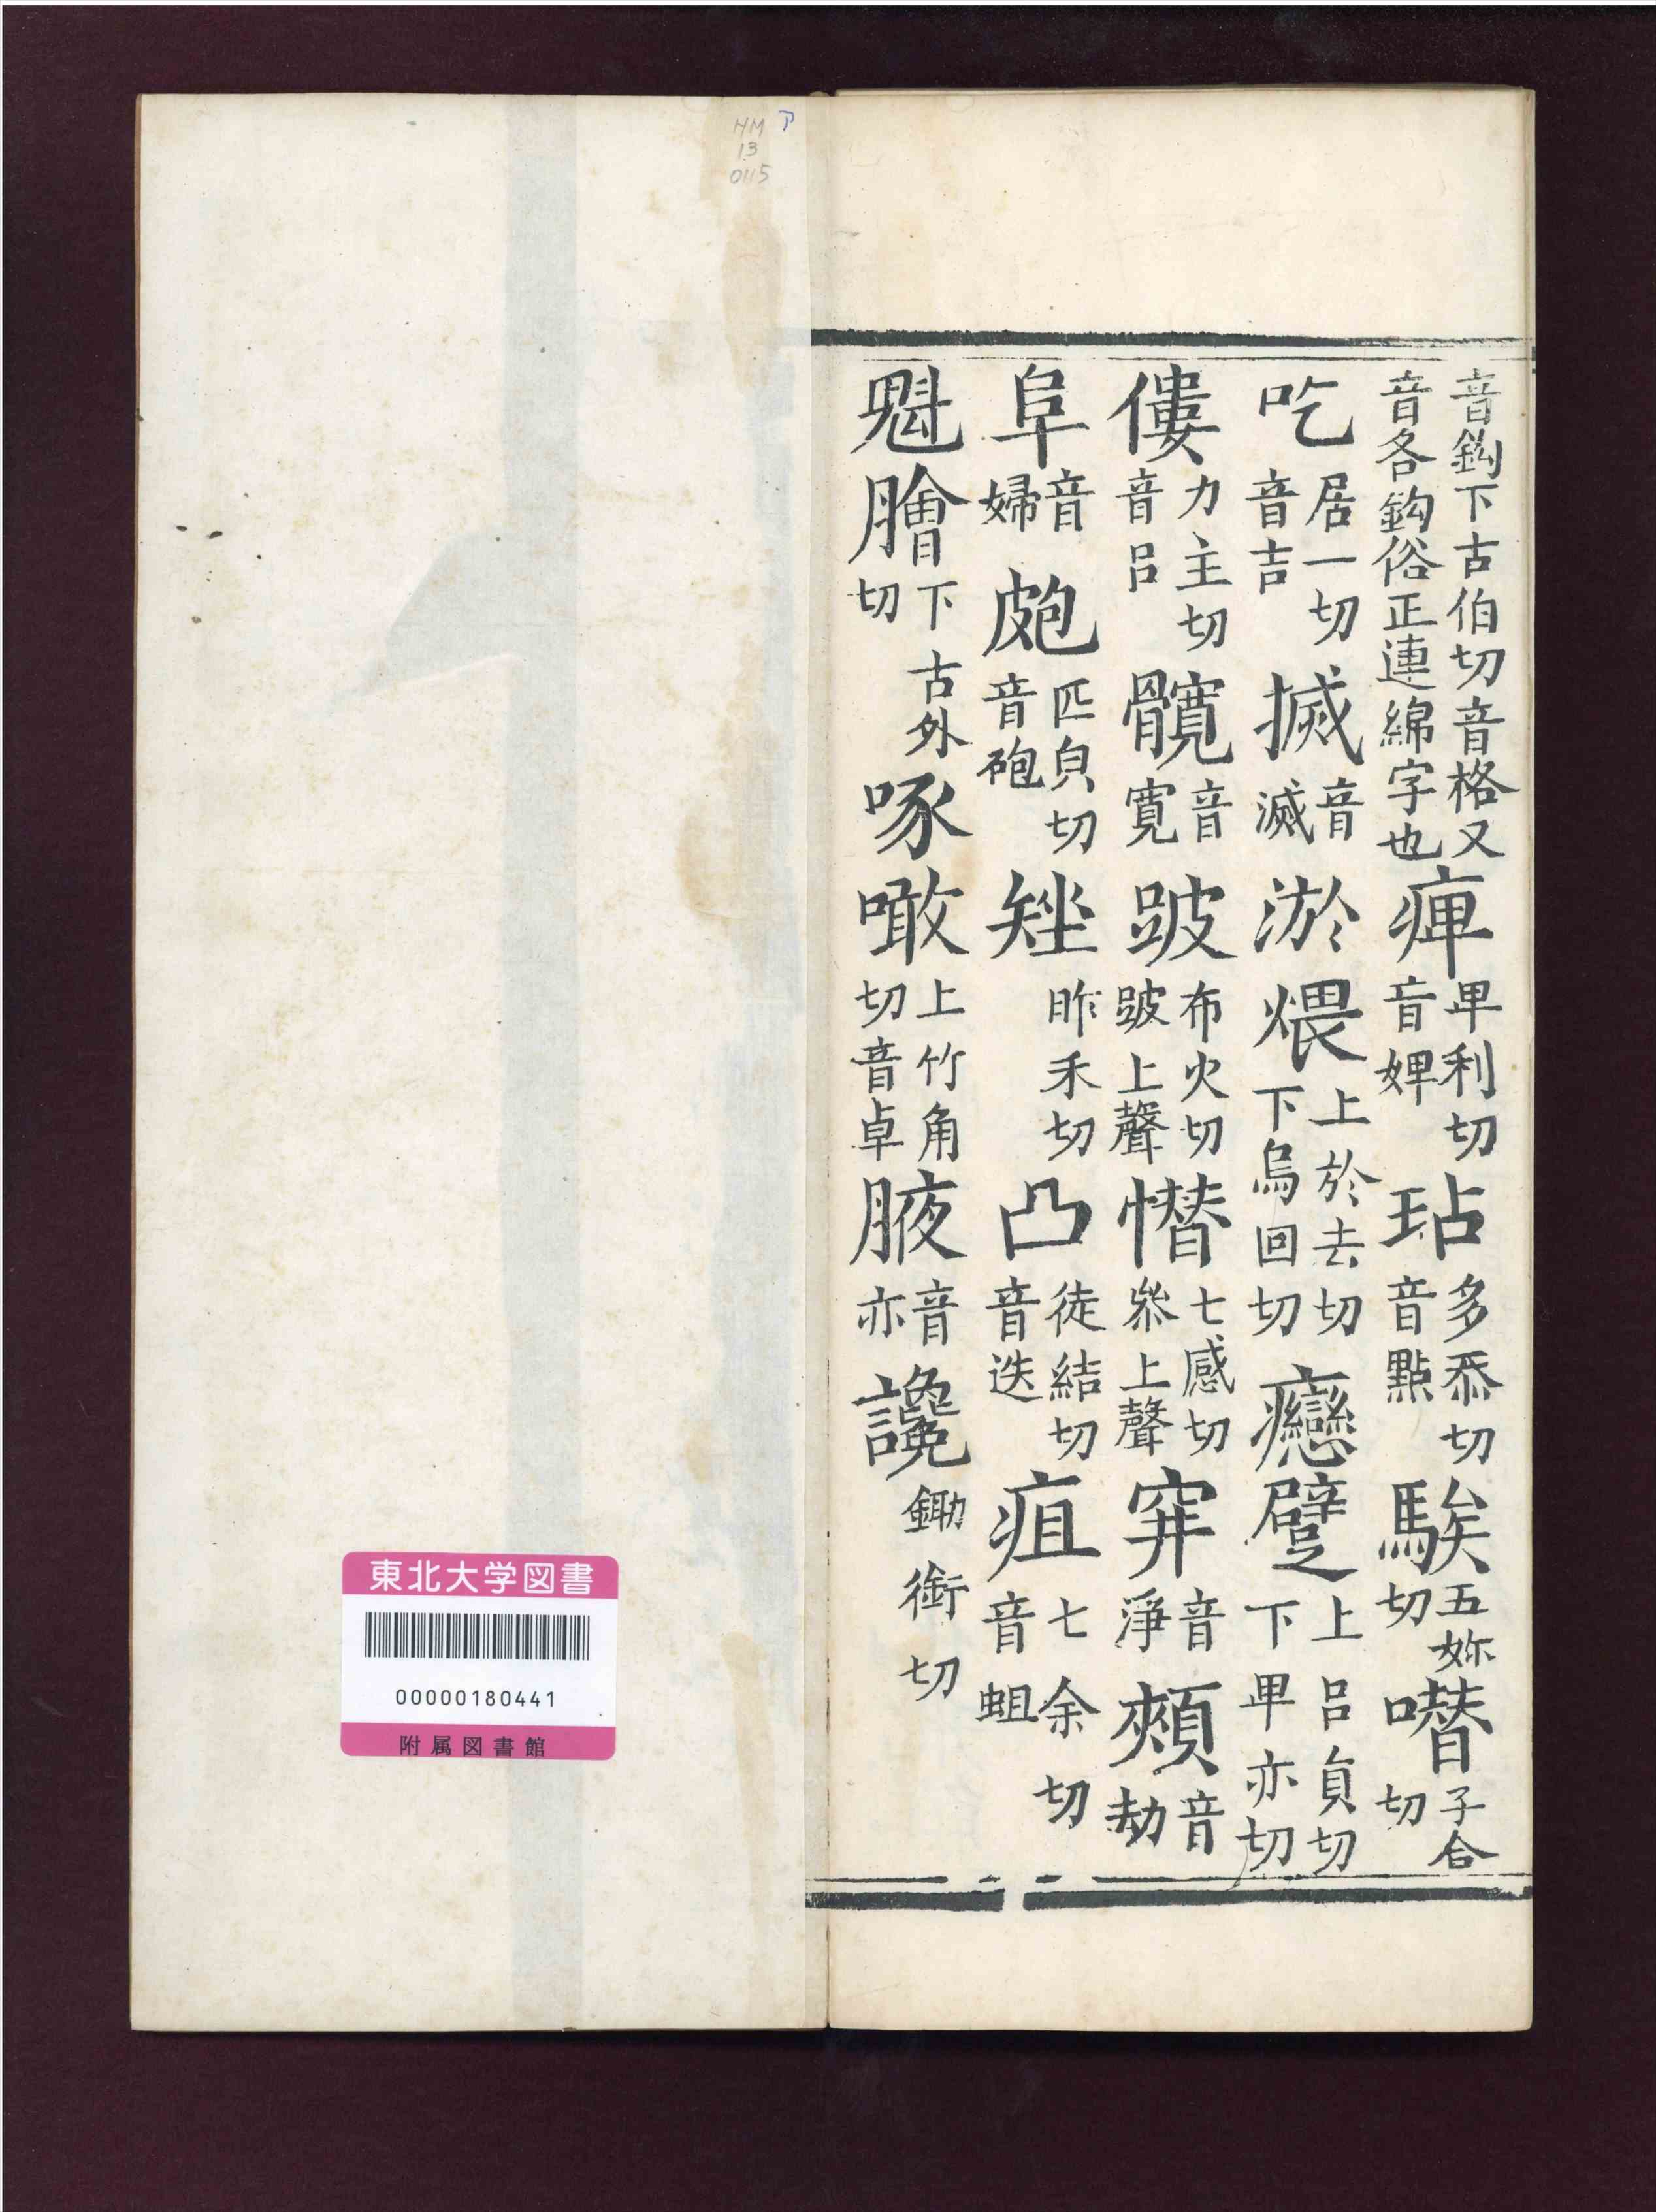 音鈎下古伯切音格又音各鈎俗正連綿字也痺卑利切音婢玷多忝切音點騃五妳切噆子合切
吃居一切音吉搣音滅淤煨上於去切下烏回切癵躄上呂貞切下卑亦切
僂力主切音呂髖音寬跛布火切跛上聲憯七感切叅上聲穽音淨頰音劫
阜音婦皰匹皃切音砲矬昨禾切凸徒結切音迭疽七余切音蛆
魁膾下古外切啄噉上竹角切音卓腋音亦讒鋤銜切
HM ア
13
0115
東北大学図書
00000180441
附属図書館